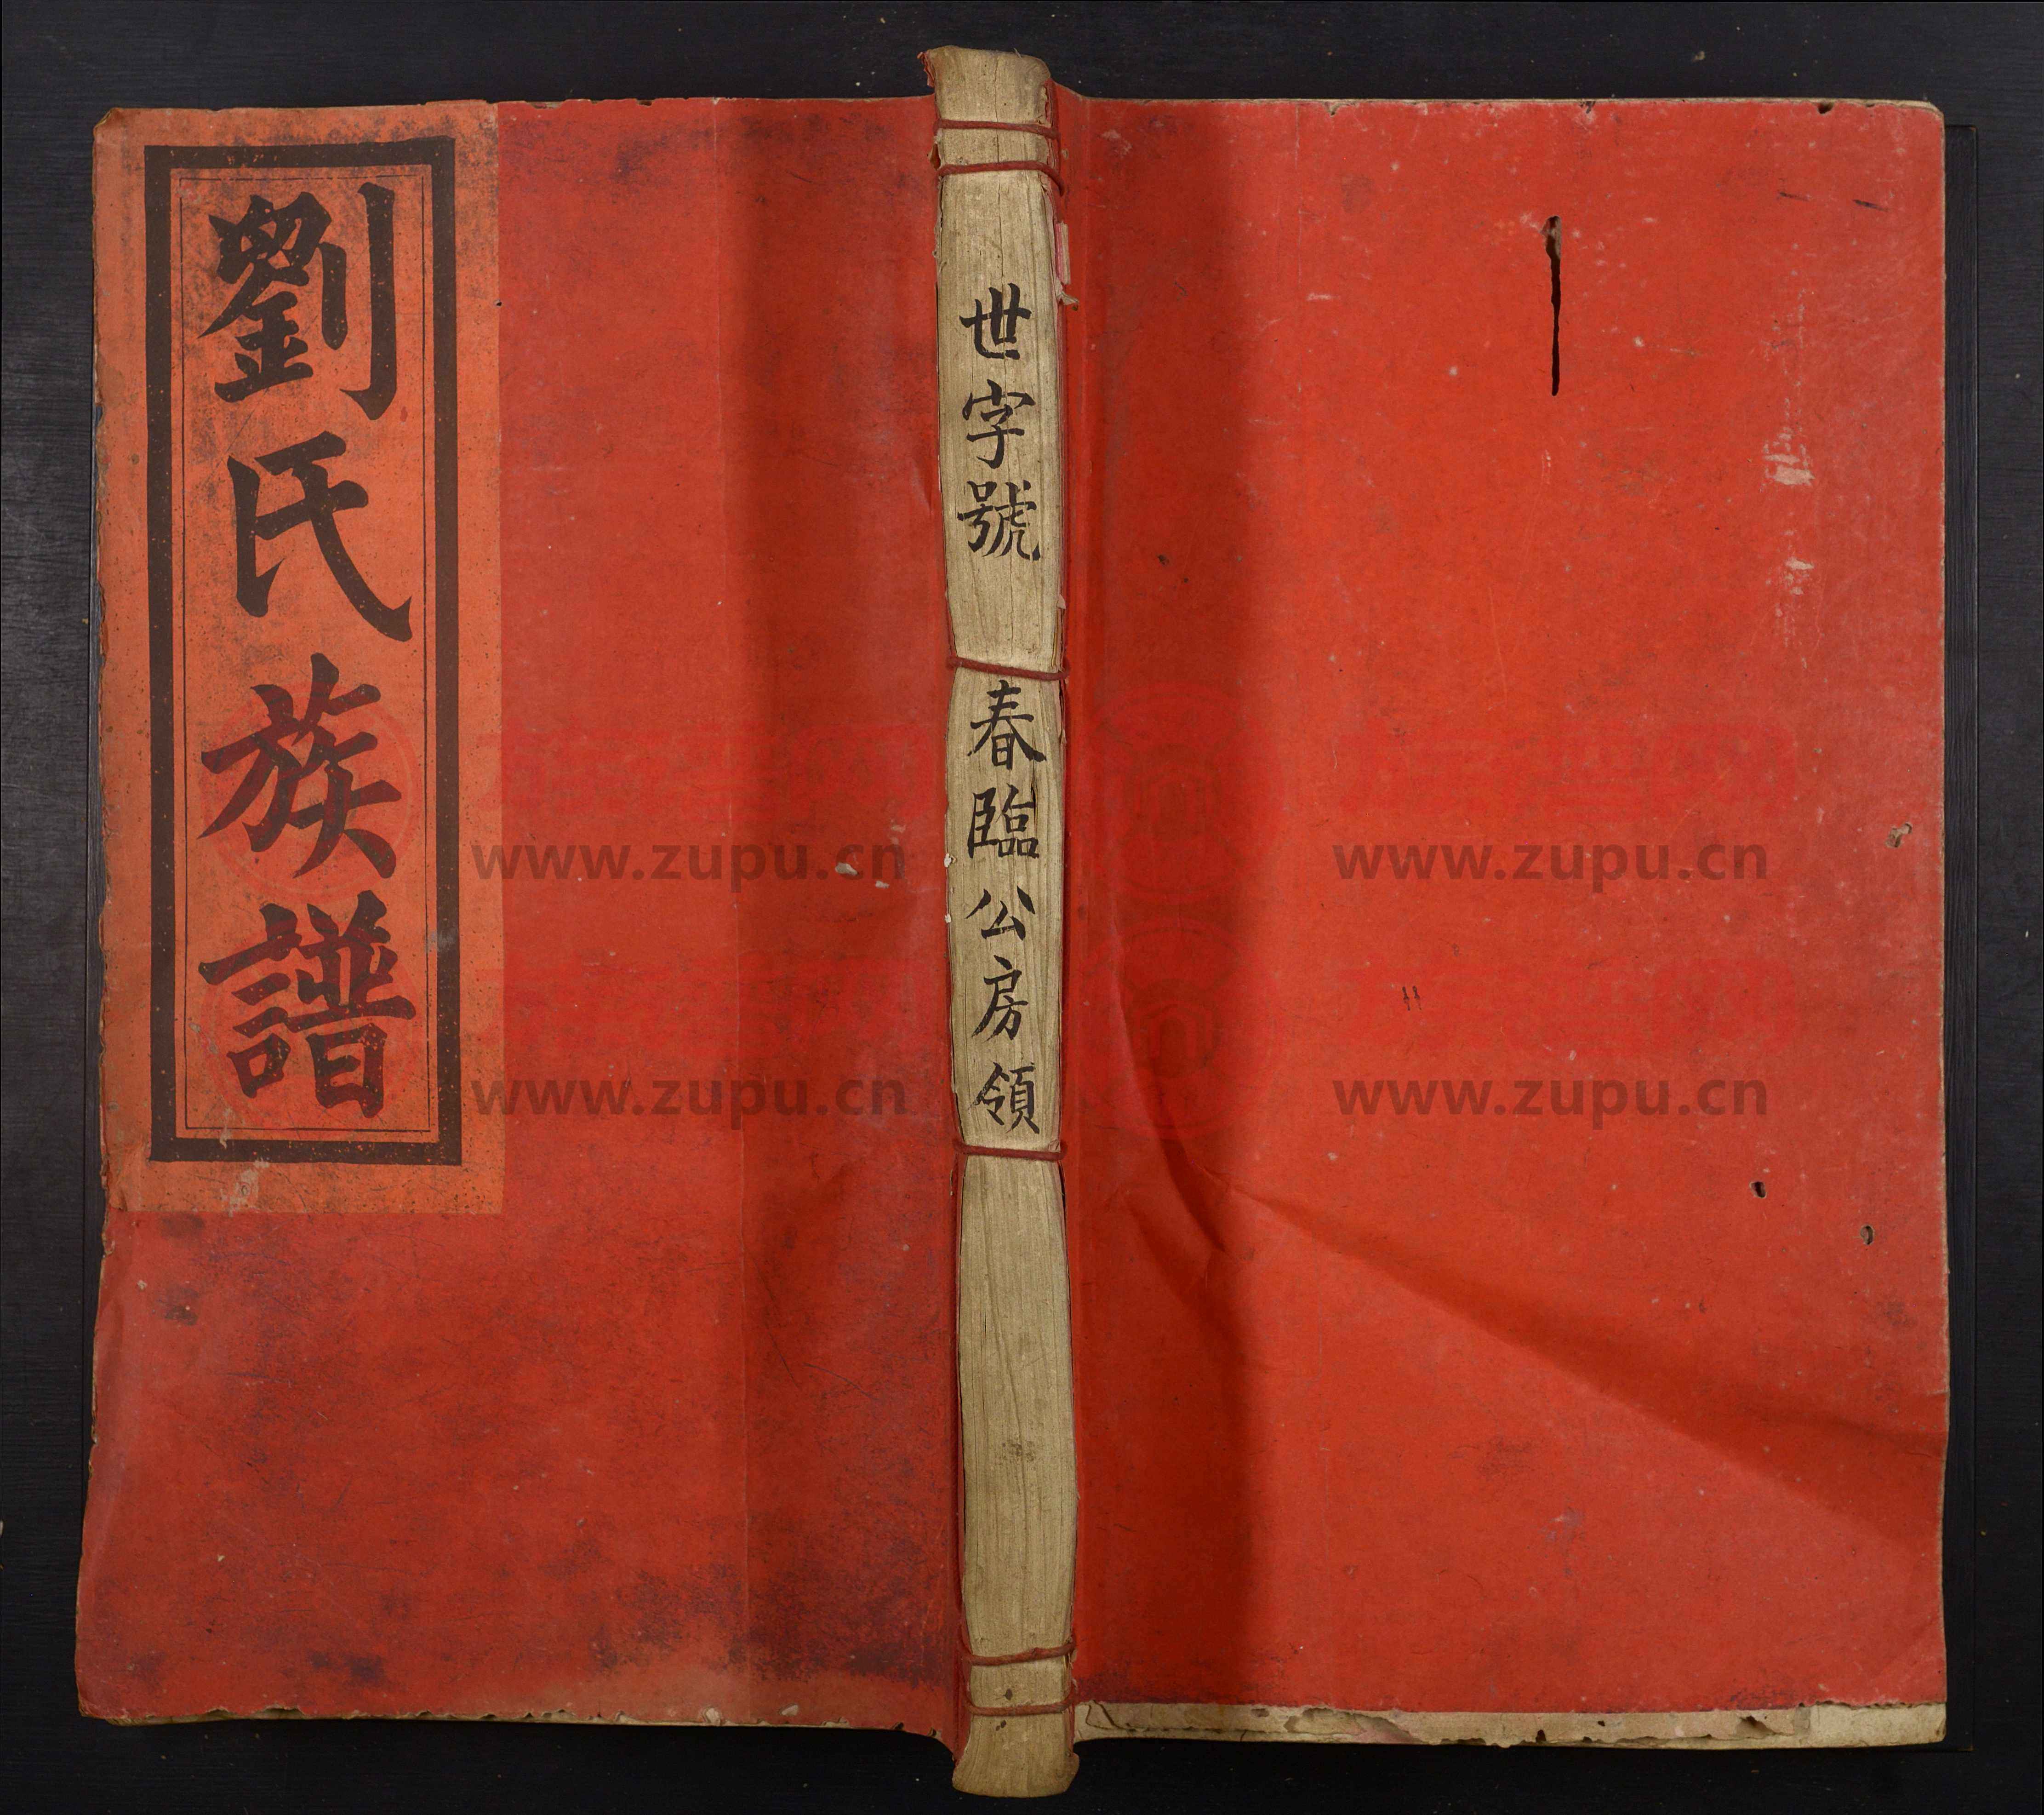 劉氏族譜
世字號 春臨公房領
www.zupu.cn
www.zupu.cn
www.zupu.cn
www.zupu.cn